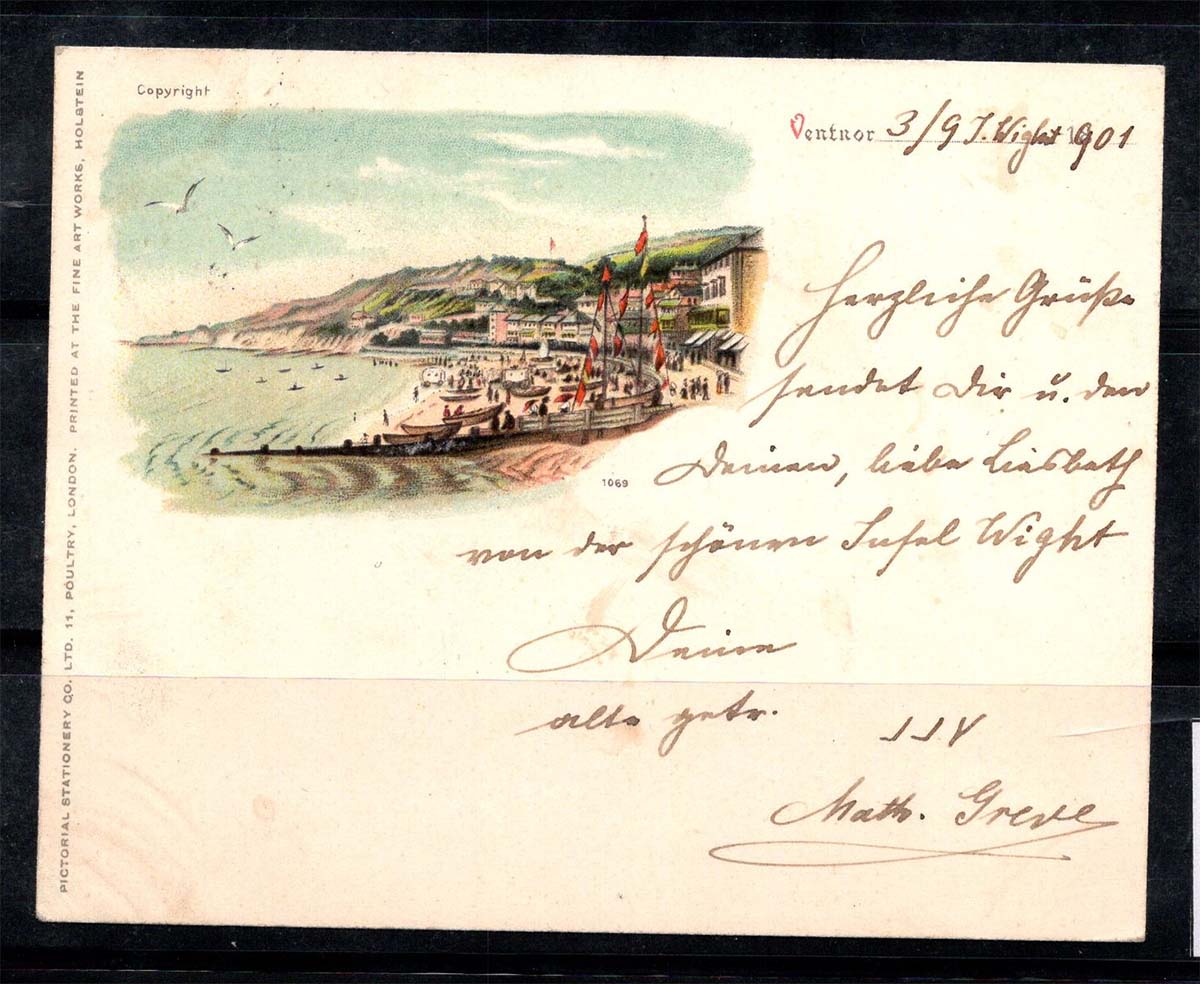 Copyright
Ventnor 3/9 J. Wight 1901
Herzliche Grüße
sendet Dir u. den
Deinen, liebe Liesbeth
1069
von der schönen Insel Wight
Deine
alte getr.
Math. Greve
PICTORIAL STATIONERY CO. LTD. 11, POULTRY, LONDON. PRINTED AT THE FINE ART WORKS, HOLSTEIN